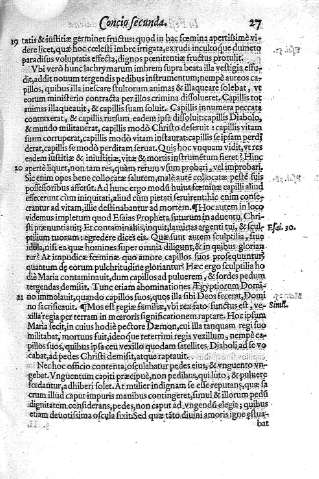 Concio secunda. 27
19 tatis & iustitiæ germinet fructus: quod in hac fœmina apertissimè vi-
dere licet, quæ hoc cœlesti imbre irrigata, ex rudi incultoque dumeto
paradisus voluptatis effecta, dignos pœnitentiæ fructus protulit.
Vbi verò hunc lachrymarum imbrem supra beata illa vestigia effu-
dit, addit nouum tergendis pedibus instrumentum, nempè aureos ca-
pillos, quibus illa inescare stultorum animas & illaqueare solebat, vt
eorum ministerio contracta per illos crimina dissolueret. Capillos tot
animas illaqueauit, & capillis suam soluit. Capillis innumera peccata
contraxerat, & capillis rursum eadem ipsa dissoluit: capillis Diabolo,
& mundo militauerat, capillis modò Christo deseruit: capillis vitam
suam corruperat, capillis modò vitam instaurat: capillis se ipsam perdi-
derat, capillis se modò perditam seruat. Quis hoc vnquam vidit, vt res
eadem iustitiæ & iniustitiæ, vitæ & mortis instrumétum fieret? Hinc
20 apertè liquet, non tam res, quàm rerum vsum probari, vel improbari.
Sic enim opes bene collocatæ salutem, malè autè collocatæ pestè suis
possessoribus afferút. Ad hunc ergo modũ huius fœminæ capilli aliud
effecerunt cùm iniquitati, aliud cùm pietati seruirent: hîc enim conse-
crantur ad vitam, illîc destinabantur ad mortem. ¶ Hoc autem in loco
videmus impletum quod Esaias Propheta, futurum in aduentu Chri-
sti prænuntiauit: Et contaminabis, inquit, laminas argenti tui, & scul-
ptilium tuorum: egredere dices eis. Quæ sunt autem sculptilia, siue
Esai. 30.
idola, nisi ea quæ homines super omnia diligunt, & in quibus glorian-
tur? At impudicæ fœminæ quo amore capillos suos prosequuntur?
quantum de eorum pulchritudine gloriantur? Hæc ergo sculptilia ho-
die Maria contaminauit, dum capillos ad puluerem, & sordes pedum
tergendas demisit. Tunc etiam abominationes Ægyptiorum Domi-
21 no immolauit, quando capillos suos, quos illa sibi Deos fecerat, Domi
no sacrificauit. ¶ Mos est regiæ familiæ, vbi rex fato functus est, ve-
Simil.
xilla regia per terram in mœroris significationem raptare. Hoc ipsum
Maria fecit, in cuius hodiè pectore Dæmon, cui illa tanquam regi suo
militabat, mortuus fuit, ideoque teterrimi regis vexillum, nempè ca-
pillos suos, quibus ipsa ceu vexillo quodam satellites Diaboli ad se vo-
cabat, ad pedes Christi demisit, atque raptauit.
Nec hoc officio contenta, osculabatur pedes eius, & vnguento vn-
gebat. Vnguentum capiti præcipuè, non pedibus, qui luto, & puluere
fœdantur, adhiberi solet. At mulier indignam se esse reputans, quæ sa
crum illud caput impuris manibus contingeret, simul & illorum pedũ
dignitatem considerans, pedes, non caput ad vngendũ elegit; quibus
etiam deuotissima oscula fixit. Sed quæ tãto diuini amoris igne æstua-
bat